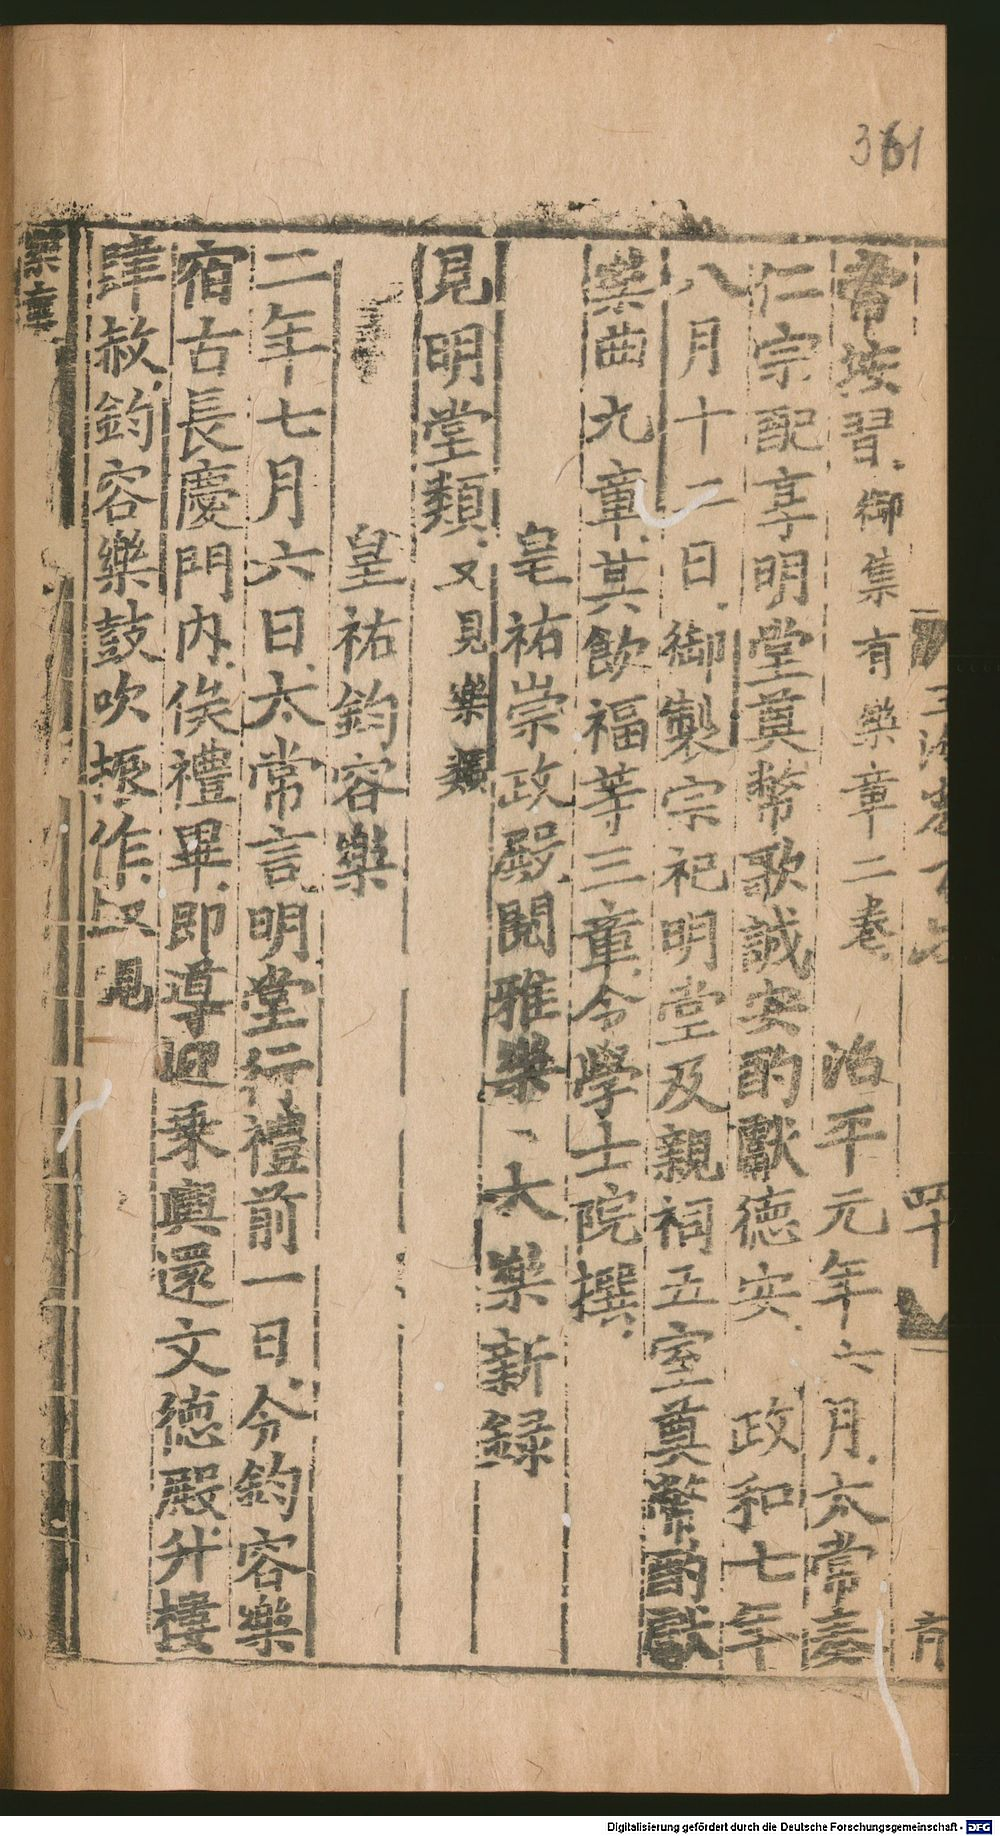 361
常按習御集有樂章二卷　治平元年六月太常奏
仁宗配享明堂奠幣歌誠安酌獻德安　政和七年
八月十二日御製宗祀明堂及親祠五室奠幣酌獻
樂曲九章其飲福等三章令學士院撰
皇祐崇政殿閱雅樂　大樂新録
見明堂類又見樂類
皇祐鈞容樂
二年七月六日太常言明堂行禮前一日令鈞容樂
宿古長慶門內俟禮畢即導迎乘輿還文德殿升樓
肆赦鈞容樂鼓吹振作又見
樂章
Digitalisierung gefördert durch die Deutsche Forschungsgemeinschaft - DFG